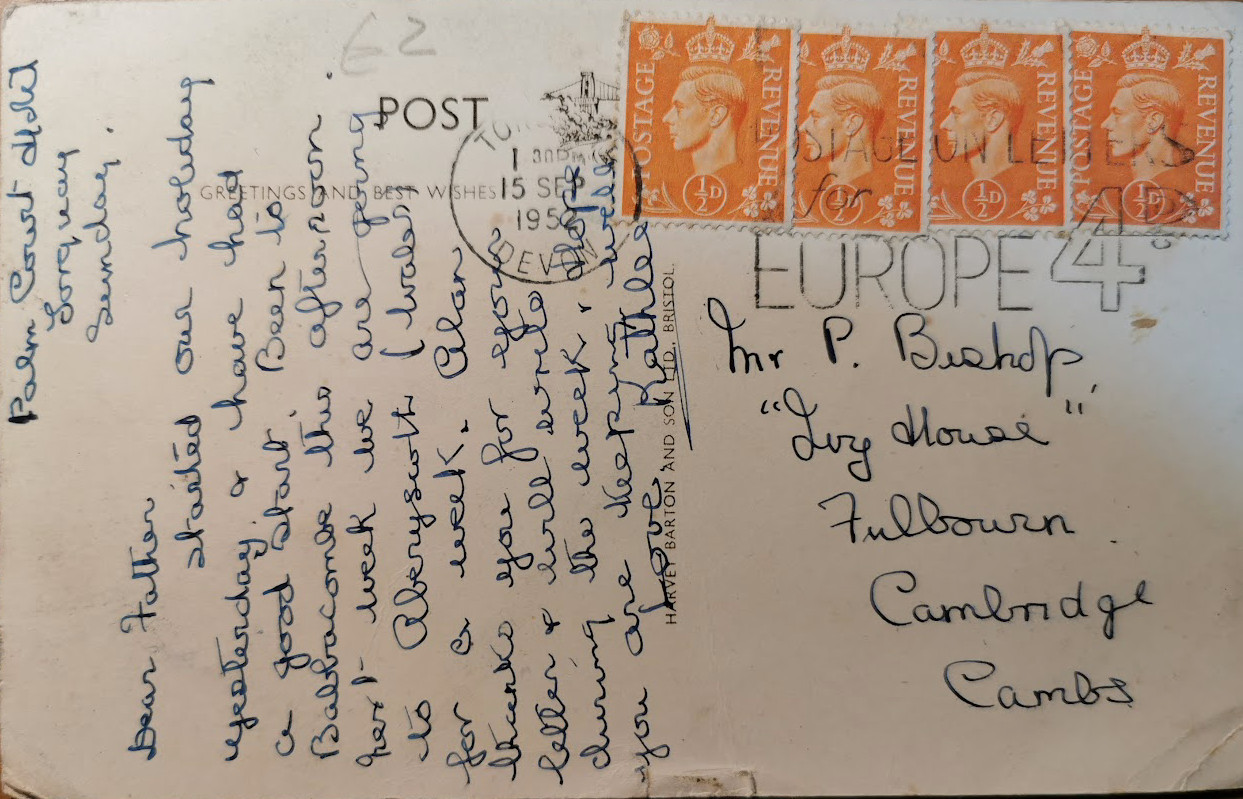 £2
POST
GREETINGS AND BEST WISHES
1.30PM
15 SEP
195
DEVON
POSTAGE REVENUE
½D
POSTAGE REVENUE
½D
POSTAGE REVENUE
½D
POSTAGE REVENUE
½D
POSTAGE ON LETTERS
for
EUROPE 4D
Palm Court Hotel
Torquay
Sunday.
Dear Father
started our holiday
yesterday & have had
a good start. Been to
Babbacombe this afternoon.
next week we are going
to Aberyswth (Wales)
for a week. Alan
thanks you for your
letter & will write
during the week. & hope
you are keeping well
Love Kathleen
HARVEY BARTON AND SON LTD. BRISTOL.
Mr P. Bishop
"Ivy House"
Fulbourn
Cambridge
Cambs